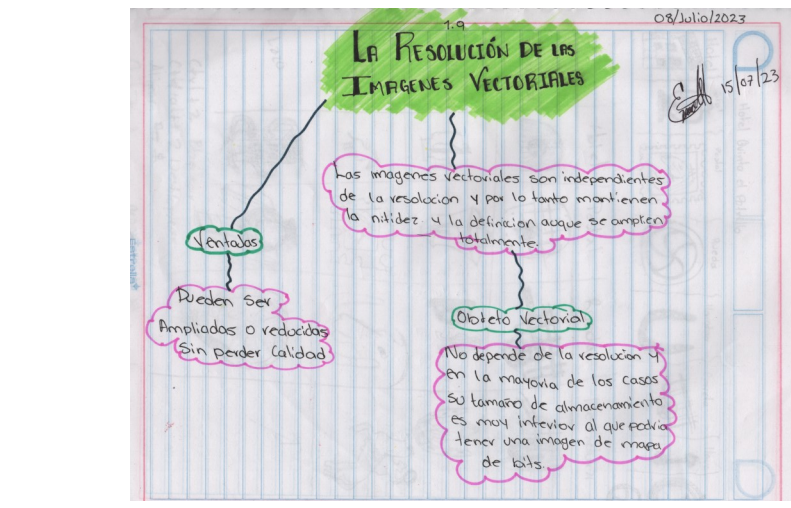 08/Julio/2023
1.9
LA RESOLUCIÓN DE LAS
IMAGENES VECTORIALES
15/07/23
Las imagenes vectoriales son independientes
de la resolucion y por lo tanto mantienen
la nitidez y la definicion auque se amplien
totalmente.
Ventajas
Pueden Ser
Ampliadas o reducidas
Sin perder Calidad
Objeto Vectorial
No depende de la resolucion y
en la mayoria de los casos
su tamaño de almacenamiento
es moy inferior al que podria
tener una imagen de mapa
de bits.